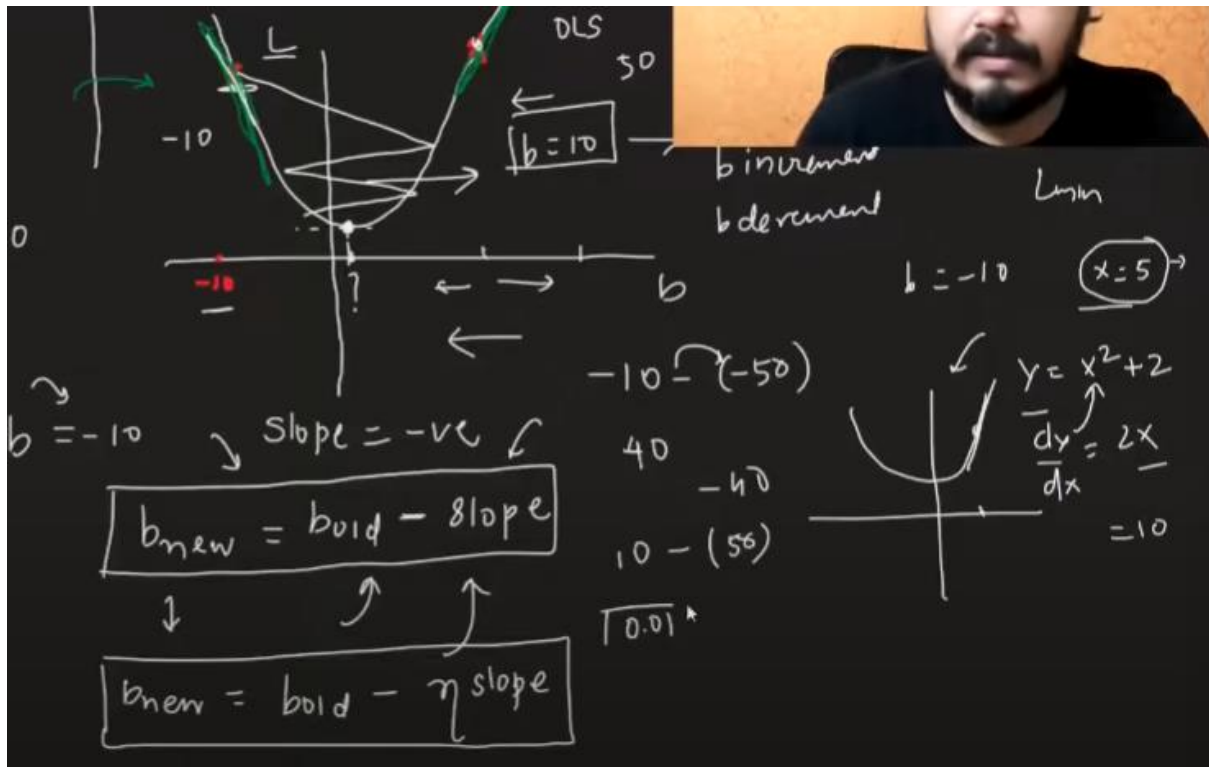 L
OLS
50
-10
b = 10
b increment
b decrement
Lmin
0
-10
?
b
b = -10
x = 5
-10 - (-50)
y = x² + 2
b = -10
slope = -ve
40
dy/dx = 2x
-40
bnew = bold - slope
10 - (50)
= 10
0.01
bnew = bold - η slope